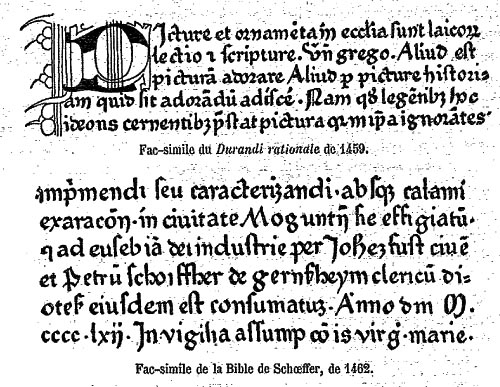 Picture et ornamēta in ecclia sunt laicoꝝ
lectio ⁊ scripture. Vn̄ grego. Aliud est
picturā adorare Aliud ꝑ picture histori-
am quid sit adorādū adiscē. Nam qd̛ legētibꝫ
ideons cernentibꝫ p̄stat pictura qm ip̄a ignorātes
Fac-simile du Durandi rationale de 1459.
imp̄mendi seu caracterizandi. absqꝫ calami
exaracōn̄. in ciuitate Moguntn̄ sic effigiatū.
⁊ ad eusebiā dei industrie per Johēꝫ fust ciuē
et Petrū schoiffher de gernsheym clericū di-
otes̄ eiusdem est consumatuꝫ. Anno dm̄ M.
cccc. lxij. In vigilia assumpcōis virḡ. marie.
Fac-simile de la Bible de Schœffer, de 1462.